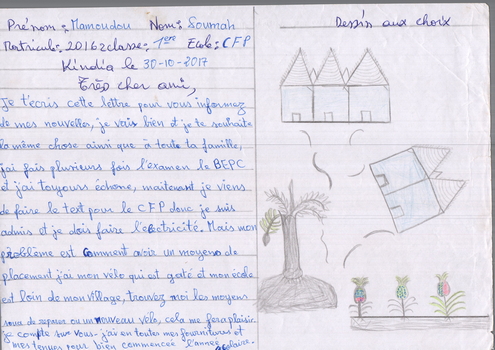 Prénom: Mamoudou Nom: Soumah
Matricule: 20162 classe: 1ère Ecole: CFP
Kindia le 30-10-2017
Très cher ami,
Je t'écris cette lettre pour vous informez
de mes nouvelles, je vais bien et je te souhaite
la même chose ainsi que à toute ta famille,
j'ai fais plusieurs fois l'examen le BEPC
et j'ai toujours échoué, maitenant je viens
de faire le text pour le CFP donc je suis
admis et je dois faire l'électricité. Mais mon
problème est comment avoir un moyens de
placement j'ai mon vélo qui est gaté et mon école
est loin de mon village, trouvez moi les moyens
pour de reparer ou un nouveau vélo, cela me fera plaisir.
je compte sur vous. j'ai en toutes mes fournitures et
mes tenues pour bien commencée l'année scolaire.
Dessin aux choix